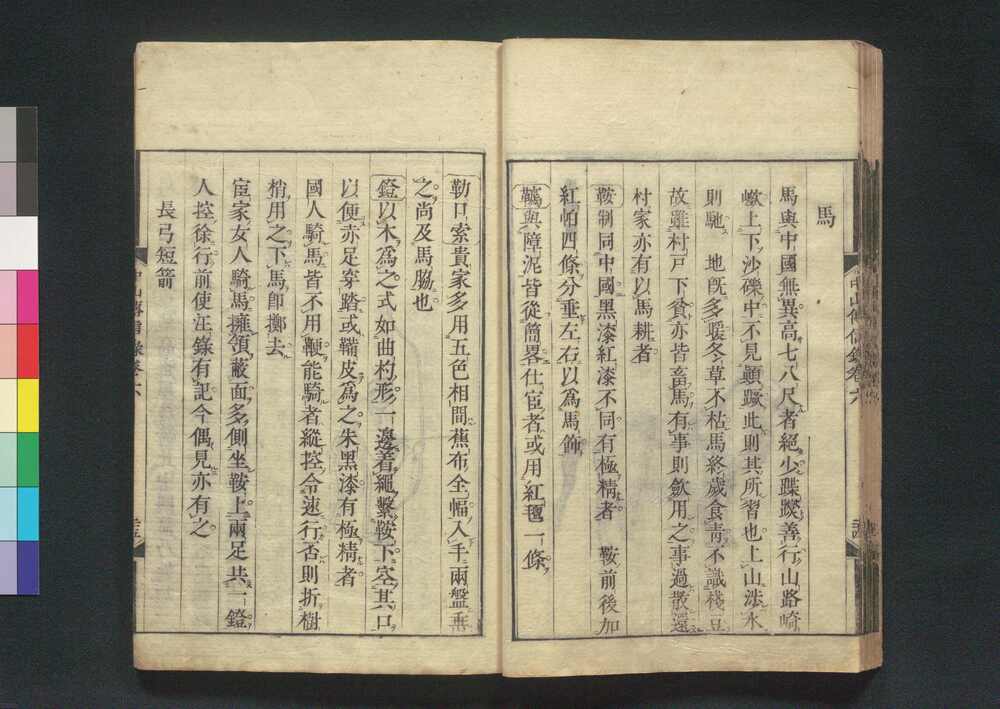 馬
馬與中國無異高七八尺者絕少蹀躞善行山路崎
嶔上下沙礫中不見顛蹶此則其所習也上山涉水
則馳　地旣多暖冬草不枯馬終歲食靑不識棧豆
故雖村戸下貧亦皆畜馬有事則歛用之事過散還
村家亦有以馬耕者
鞍制同中國黑漆紅漆不同有極精者　鞍前後加
紅帕四條分垂左右以爲馬飾
韉與障泥皆從簡畧仕宦者或用紅氊一條
勒口索貴家多用五色相間蕉布全幅入手兩盤垂
之尚及馬脇也
鐙以木爲之式如曲杓形一邊着繩繫鞍下空其口
以便赤足穿踏或鞔皮爲之朱黑漆有極精者
國人騎馬皆不用鞭能騎者縱控令速行否則折樹
梢用之下馬卽擲去
宦家女人騎馬擁領蔽面多側坐鞍上兩足共一鐙
人控徐行前使汪錄有記今偶見亦有之
長弓短箭
中山傳信錄卷六
中山傳信錄卷六